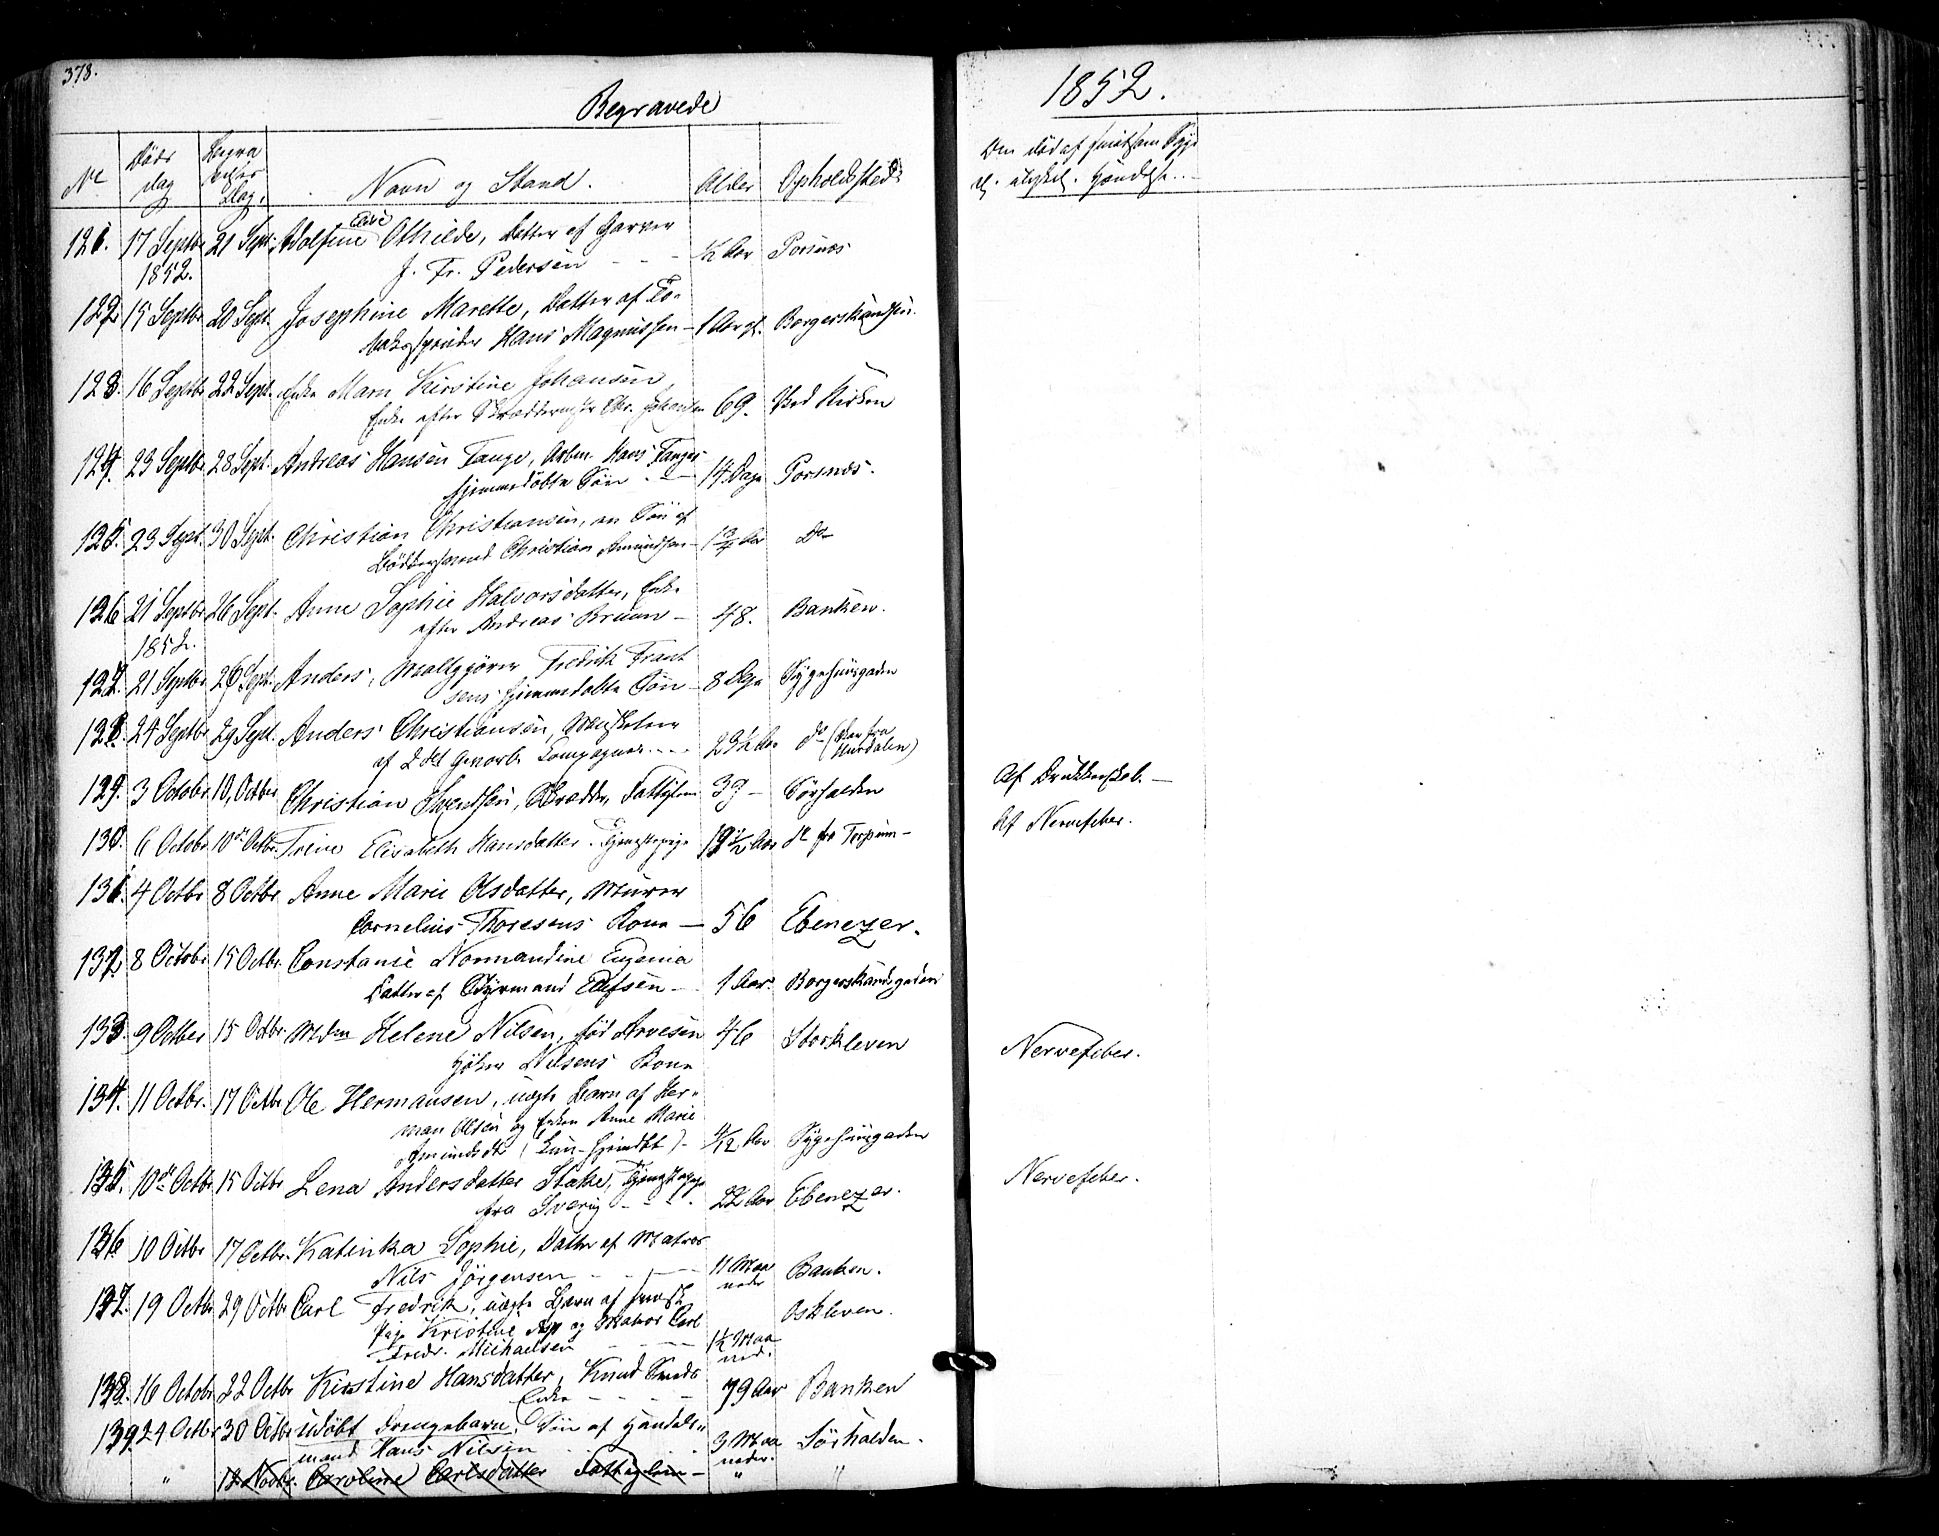 378.
Begravede
1852.
No Døds dag Begravelses Dag. Navn og Stand. Alder Opholdssted
Om død af smitsom Syg
el. ulykkel. Hændelse..
121. 17 Septbr 21 Sept. Adolfine Elise Othilde, Datter af Garver
1852. J. Fr. Pedersen - - - ½ Aar Porsnæs
122. 15 Septbr 20 Sept. Josephine Marette, Datter af To-
bakspinder Hans Magnussen - 1 Aar gl. Borgerskandsen.
123. 16 Septbr 22 Sept. Enke Maren Kirstine Johansen,
Enke efter Skræddermester Chr. Johansen 69. Ved Kirken
124. 23 Septbr 28 Sept. Andreas Hansen Tange, Arbm. Hans Tanges
hjemmedøbte Søn - 14 Dage Porsnæs.
125. 23 Sept. 30 Sept. Christian Christiansen, en Søn af
Bøddersvend Christian Amundsen - 1¾ Aar Do
126 21 Septbr 26 Sept. Anne Sophie Halvorsdatter, Enke
1852. efter Andreas Bruun - 48. Banken.
127. 21 Septbr 26 Sept. Anders, Maltgjører Fredrik Frant
sens hjemmedøbte Søn - 8 Dge Sygehuusgaden
128. 24 Septbr 29 Sept. Anders Christiansen,
af 2det Compagnie.... 23½ Aar do (Den fra
Hurdalen)
129. 3 Octobr 10, Octbr Christian Svendsen, Skrædder, Fattiglem 39 - Sørhalden
Af Drukkenskab. -
130. 6 Octobr 10de Octbr. Trine Elisabeth Hansdatter. Tjenestepige 19½ Aar do fra Torpum -
Af Nervefeber.
131. 4 Octbr 8 Octbr Anne Marie Olsdatter, Murer
Cornelius Thoresens Kone - 56 Ebenezer.
132. 8 Octobr 15 Octbr. Constance Normandine Eugenia
Datter af Styrmand Ellefsen - 1 Aar. Borgerskandsgaden
133. 9 Octber 15 Octbr. Mdm Helene Nilsen, fød Arvesen 46 Storkleven
Høker Nilsens Kone
Nervefeber.
134. 11 Octbr. 17 Octbr Ole Hermansen, uægte Barn af Her-
man Olsen og Enken Anne Marie
Amundsdr (kun hjemdbt) - 4/12 Aar Sygehuusgaden
135. 10de Octbr 15 Octbr Lena Andersdatter Stake, Tjenestepige
fra Sverig - - - 22 Aar Ebenezer.
Nervefeber.
136 10 Octbr 17 Octbr. Katinka Sophie, Datter af Matros
Nils Jørgensen - - - 11 Maa
neder Banken.
137. 19 Octbr 29 Octbr Carl Fredrik, uægte Barn af
Pige Kristine Asp og Matros Carl Oskleven.
Fredr. Michaelsen - - - 1½ Maa
ned.
138. 16 Octobr 22 Octbr Kirstine Hansdatter, Knud Smeds
Enke - - - - 79 Aar Banken
139 24 Octbr 30 Octbr udøbt Drengebarn, Søn af Handels-
mand Hans Nilsen 3 Maa
neder. Sørhalden.
" 12 Novbr. Caroline Carlsdatter Fattiglem - " "